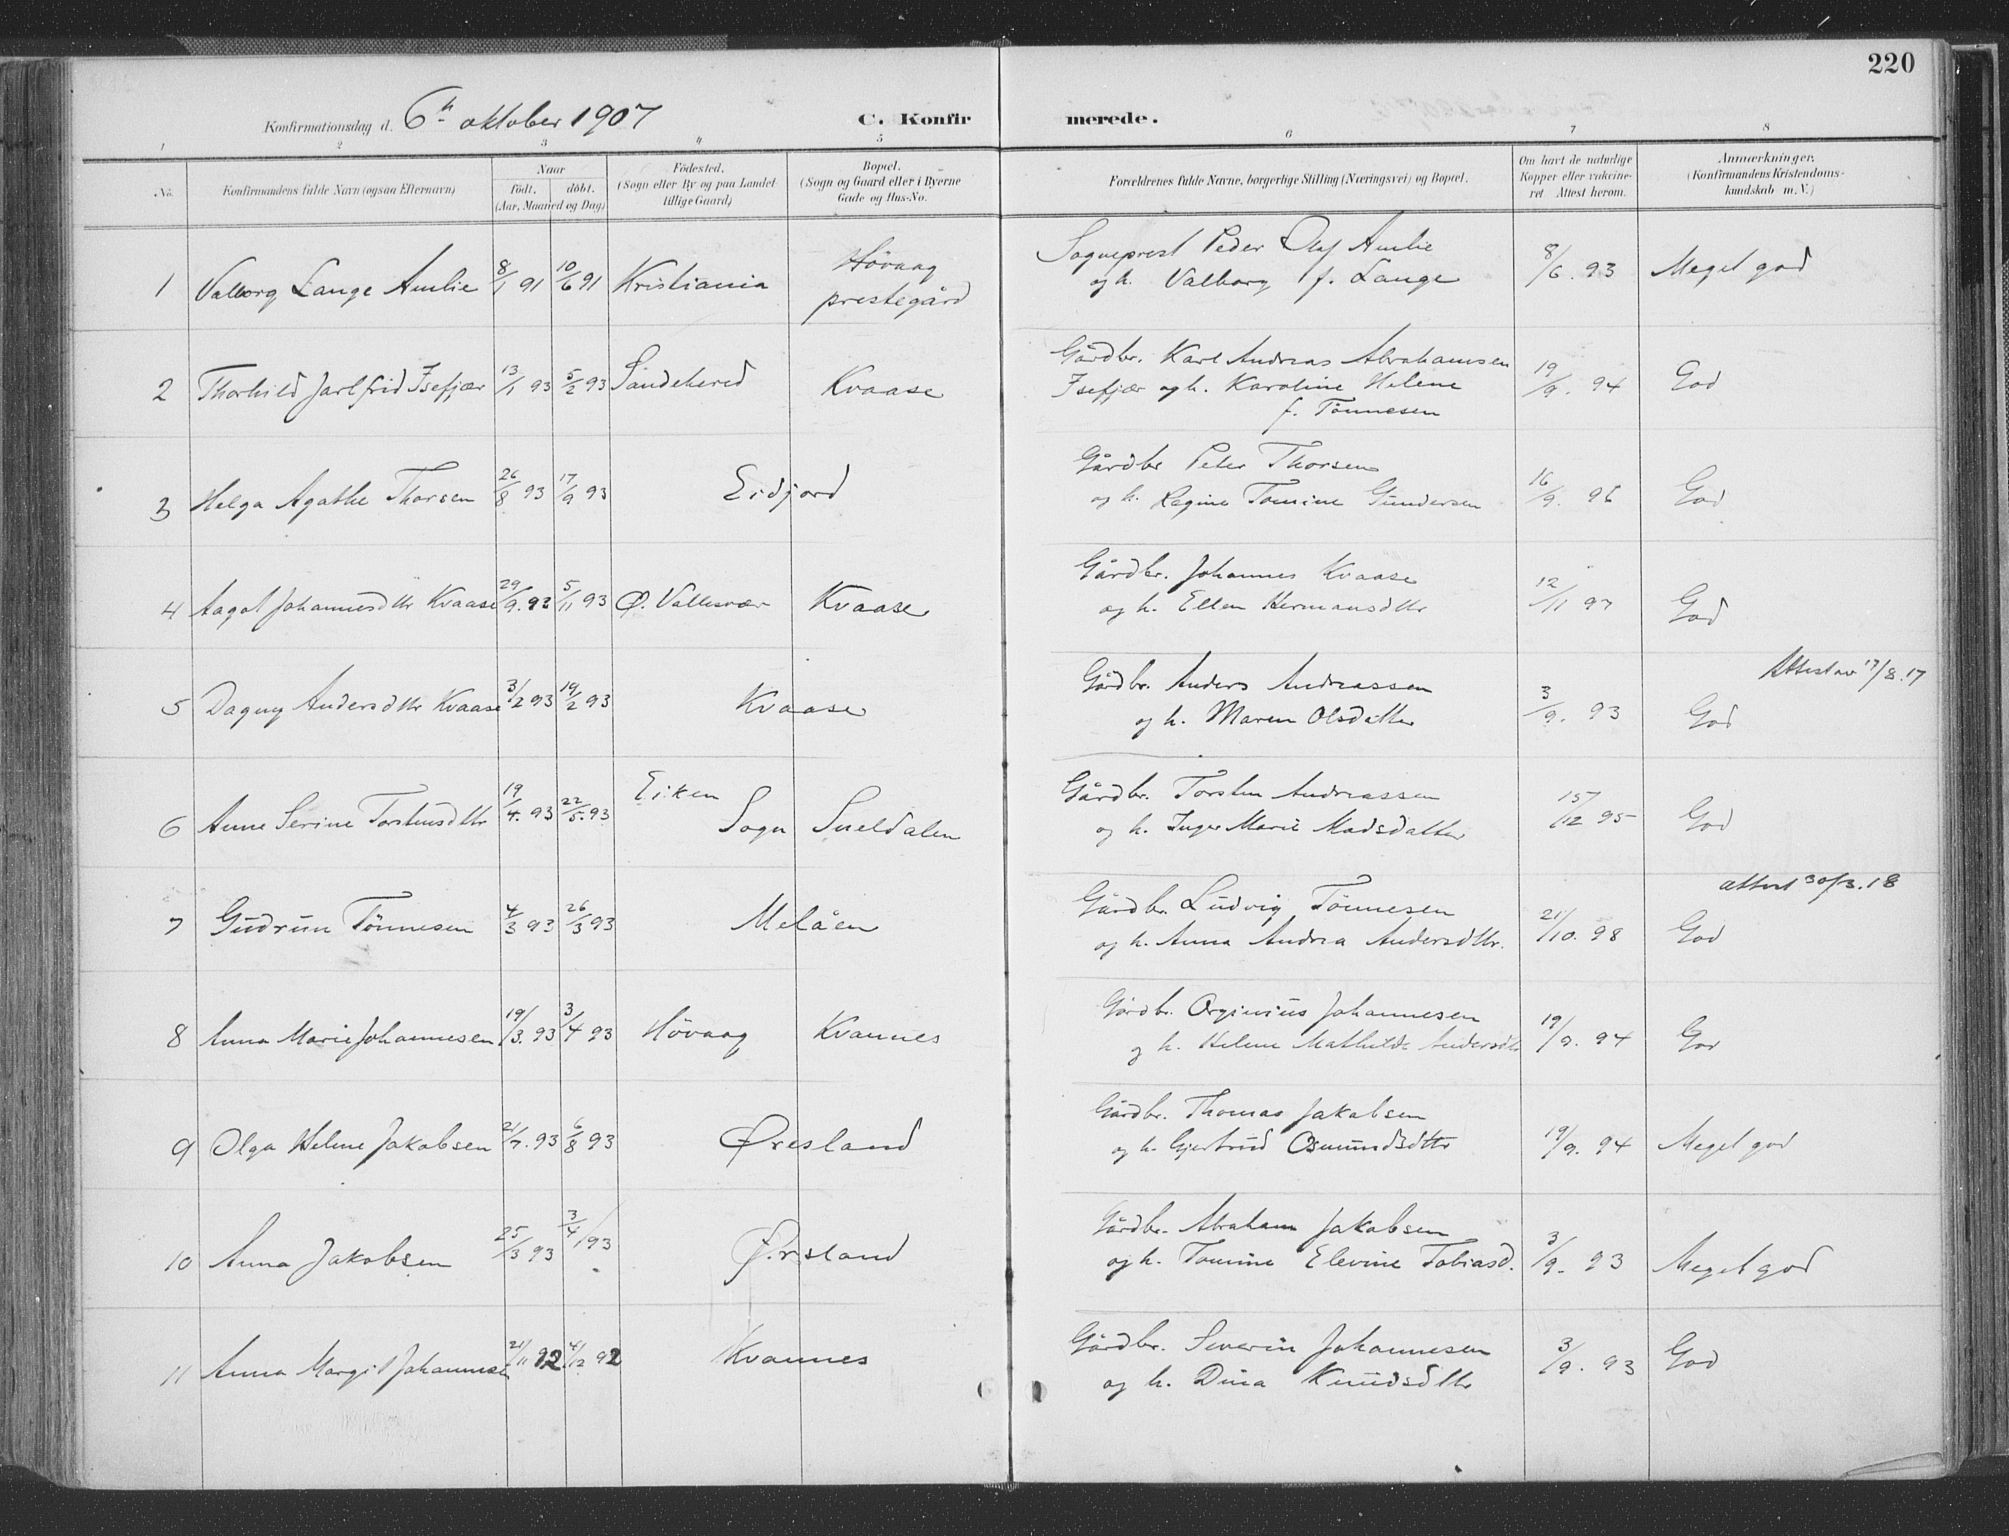 220
Konfirmationsdag d. 6te oktober 1907 C. Konfirmerede.
1 2 3 4 5 6 7 8
No. Konfirmandens fulde Navn (ogsaa Efternavn) Naar født. døbt. (Aar, Maaned og Dag) Fødested. (Sogn eller By og paa Landet tillige Gaard) Bopæl. (Sogn og Gaard eller i Byerne Gade og Hus-No. Forældrenes fulde Navne, borgerlige Stilling (Næringsvei) og Bopæl. Om havt de naturlige Kopper eller vakcineret Attest herom. Anmærkninger. (Konfirmandens Kristendomskundskab m. V.)
1 Valborg Lange Amlie 8/1 91 10/6 91 Kristiania Høvaag prestegård Sogneprest Peder Olaf Amlie og h. Valborg f. Lange 8/6. 93 Meget god
2 Thorhild Jarlfrid Isefjær 13/1 93 5/2 93 Sandeherred Kvaase Gårdbr. Karl Andreas Abrahamsen Isefjær og h. Karoline Helene f. Tønnesen 19/9. 94 God
3 Helga Agathe Thorsen 26/8 93 17/9 93 Eidjord Gårdbr Peter Thorsen og h. Regine Tomine Gundersen 16/9. 96 God
4 Aagot Johannesdtr Kvaase 29/9. 93 5/11 93 Ø. Vallesvær Kvaase Gårdbr. Johannes Kvaase og h. Ellen Hermansdtr 12/11 97 God
5 Dagny Andersdtr Kvaase 3/2 93 19/2 93 Kvaase Gårdbr. Anders Andreassen og h. Maren Olsdatter 3/9. 93 God Attest av 17/8. 17
6 Anne Serine Torstensdtr 19/4. 93 22/5. 93 Eiken Sogn Sneldalen Gårdbr. Torsten Andreassen og h. Inger Marie Madsdatter 15/12 95 God
7 Gudrun Tønnesen 4/3 93 26/3 93 Melåen Gårdbr. Ludvig Tønnesen og h. Anna Andrea Andersdtr. 21/10. 98 God attest 30/3. 18
8 Anna Marie Johannesen 19/3. 93 3/4 93 Høvaag Kvannes Gårdbr. Orginius Johannesen og h. Helene Mathilde Andersdtr 19/9. 94 God
9 Olga Helene Jakobsen 21/7. 93 6/8 93 Øresland Gårdbr. Thomas Jakobsen og h. Gjertrud Osmundsdtr 19/9. 94 Meget god
10 Anna Jakobsen 25/3 93 3/4 93 Ørsland Gårdbr. Abraham Jakobsen og h. Tomine Elevine Tobiasd. 3/9. 93 Meget god
11 Anna Margit Johannesen 21/11 92 4/12 92 Kvannes Gårdbr. Severin Johannesen og h. Dina Knudsdtr 3/9. 93 God